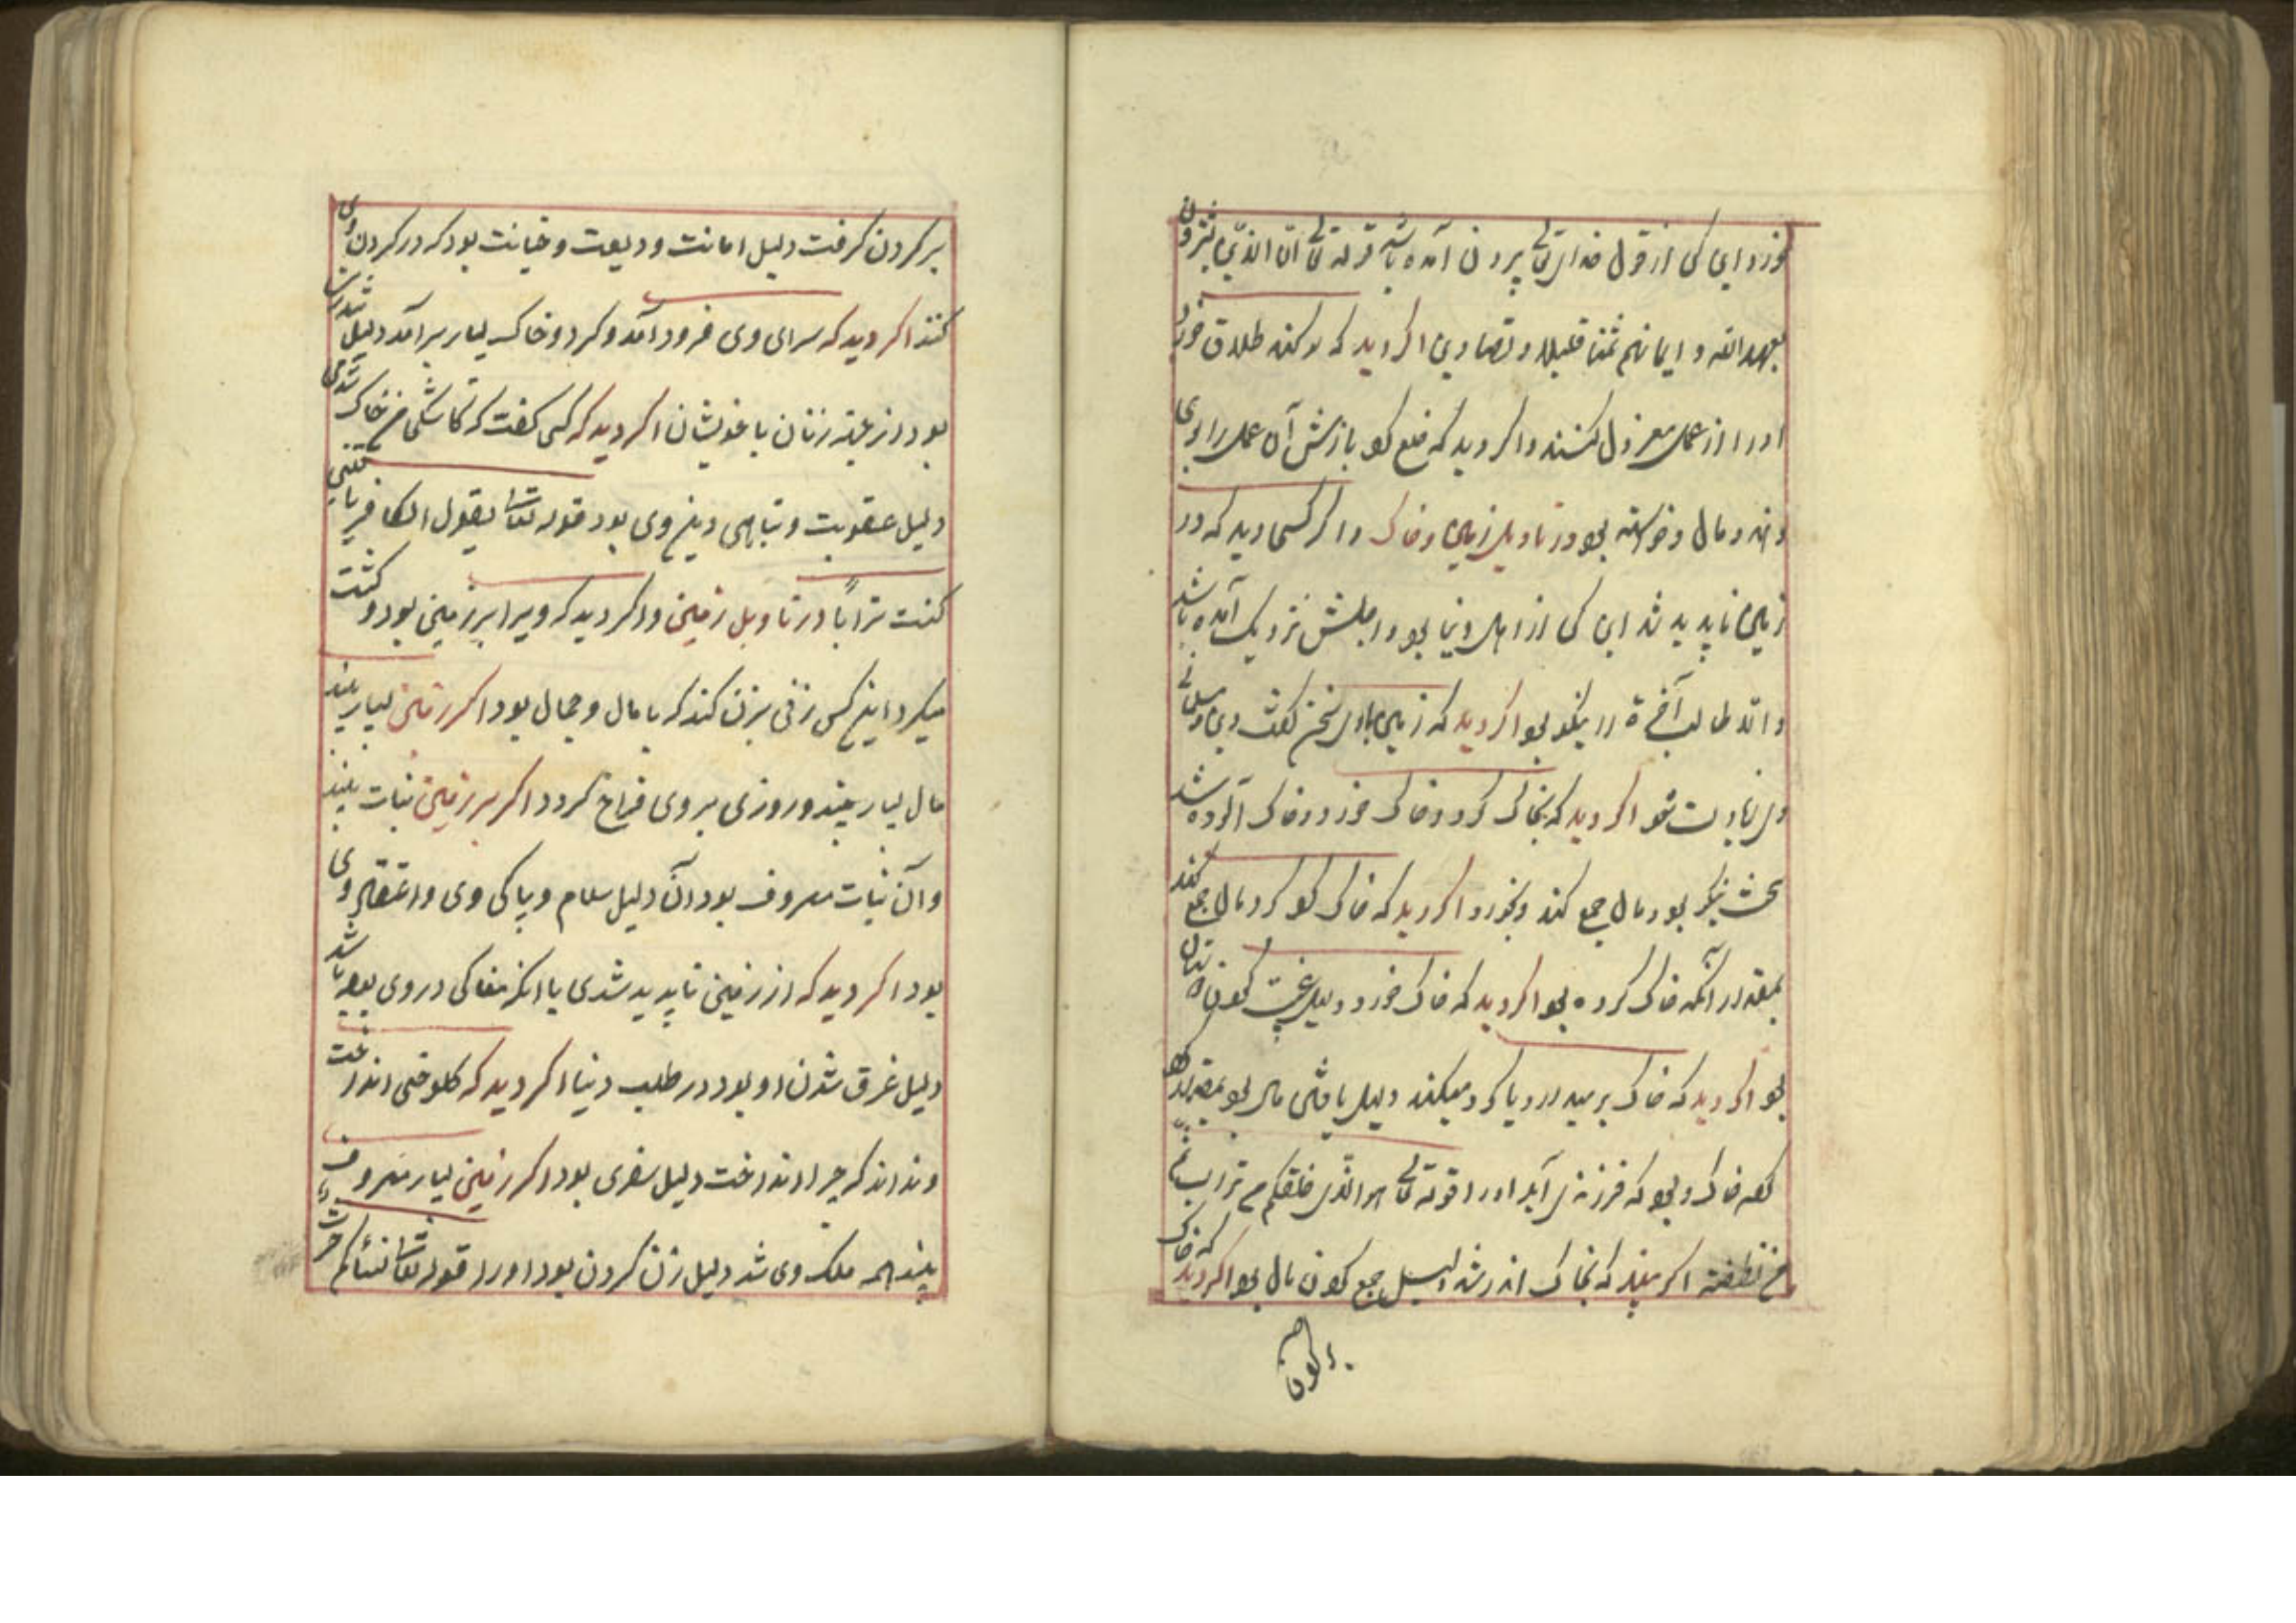 خورد این کس از قول خدای تعالی بیرون آمده باشد قوله تعالی ان الذین یشترون
بعهد الله و ایمانهم ثمنا قلیلا و تصاویر اگر دید که سوکند طلاق خورد
او را از عمل معزول کنند و اگر دید که خلع کرد بازش آن عمل را بوی
دهند و مال و خواسته بود در تاویل زمین و خاک و اگر کسی دید که در
زمین ناپدید شد این کس از اهل دنیا بود و اجلش نزدیک آمده باشد
و اند طالب آخرة را نیکو بود اگر دید که زمین با وی سخن گفت دین و
اگر دید که بخاک کرد و خاک خورد و خاک آلوده شد
بود و مال جمع کند و بخورد اگر دید که خاک کرد کرد مال جمع کند
بمقدار آنکه خاک کرده بود اگر دید که خاک خورد دلیل غیبت کردن
بود اگر دید که خاک بر میدارد یا کرد میکند دلیل یافتن مال بود بمقدار
که خاک و بود که فرزندی آید او را قوله تعالی هو الذی خلقکم من تراب ثم
من نطفة اگر بیند که بخاک اندر شد دلیل جمع کردن مال بود اگر دید که خاک
بر کردن
بر کردن کرفت دلیل امانت و ودیعت و خیانت بود که در کردن وی
کنند اکر دید که سرای وی فرود آمد و کرد و خاک بسیار برآمد دلیل
بود از زنان با خویشان اکر دید که کسی کفت که کاشکی من خاک شدمی
دلیل عقوبت و تباهی دین وی بود قوله تعالی یقول الکافر یا لیتنی
کنت ترابا در تاویل زمین و اکر دید که ویرا بر زمین بود و کشت
میکرد این کس زنی بزن کند که با مال و جمال بود اکر زمین بسیار بیند
مال بسیار بیند و روزی بر وی فراخ کردد اکر بر زمین نبات بیند
و آن نبات معروف بود آن دلیل سلام و پاکی وی و اعتقاد وی
بود اکر دید که از زمین ناپدید شدی یا انکه مغاکی در وی بود باشد
دلیل غرق شدن او بود در طلب دنیا اکر دید که کلوخی انداخت
و نداند که چرا انداخت دلیل سفری بود اکر زمین بسیار معروف
بیند همه ملک وی شد دلیل زن کردن بود او را قوله تعالی نساءکم حرث